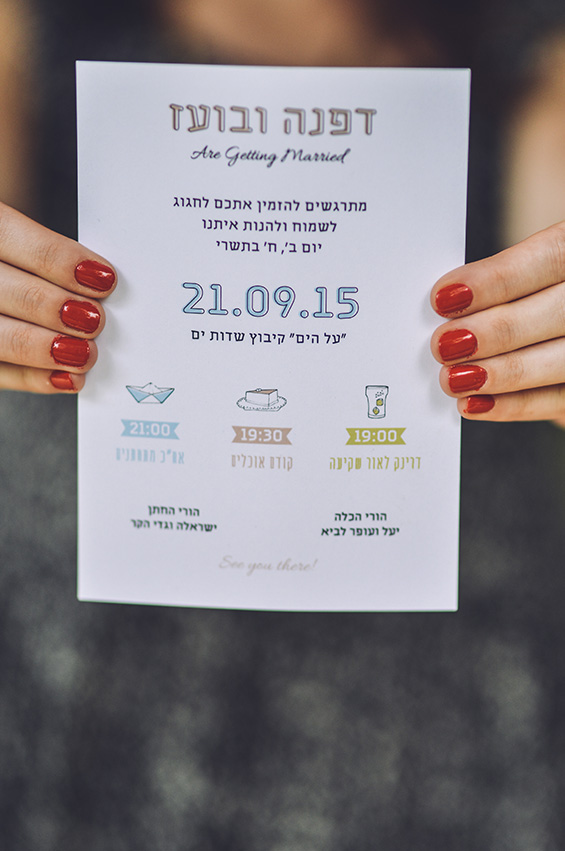 דפנה ובועז
Are Getting Married
מתרגשים להזמין אתכם לחגוג
לשמוח ולהנות איתנו
יום ב', ח' בתשרי
21.09.15
"על הים" קיבוץ שדות ים
19:00
דרינק לאור שקיעה
19:30
קודם אוכלים
21:00
אח"כ מתחתנים
הורי הכלה
יעל ועופר לביא
הורי החתן
ישראלה וגדי הקר
See you there!